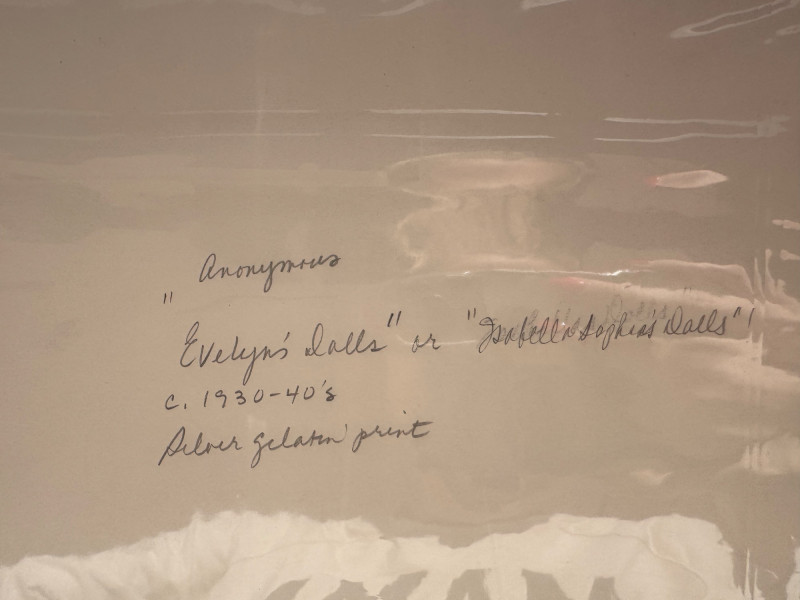 Anonymous
"Evelyn's Dolls" or "Isabella Sophia's Dolls"
c. 1930-40's
Silver gelatin print